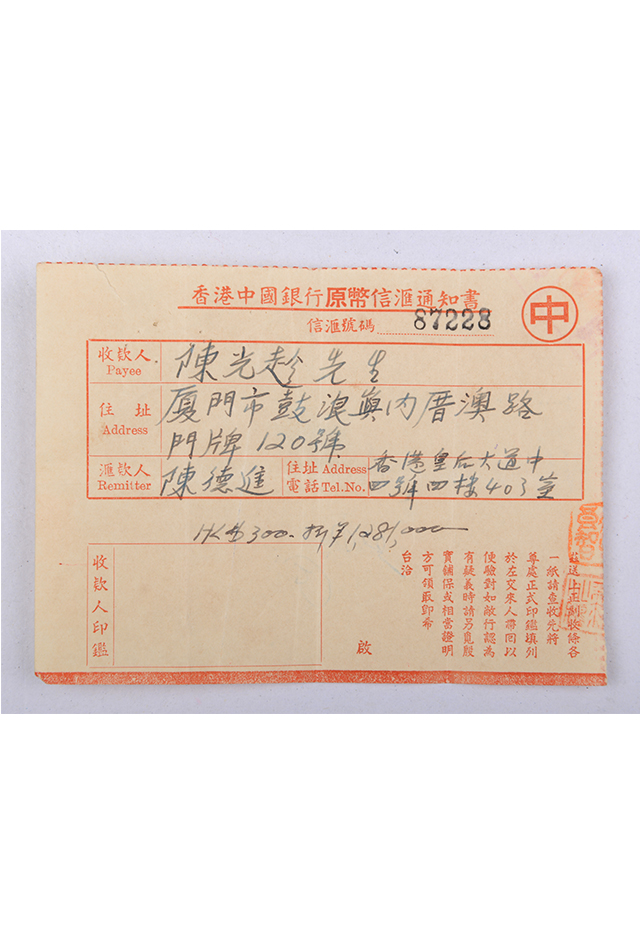 香港中國銀行原幣信滙通知書
中
信滙號碼 87223
收款人 Payee 陳光趁先生
住址 Address 廈門市鼓浪嶼內厝澳路
門牌120號
滙款人 Remitter 陳德進
住址 Address 電話 Tel.No. 香港皇后大道中
四號四楼403室
HK$300.- 折¥1,281,000
收款人印鑑
茲送上正副收條各
一紙請查收先將
尊處正式印鑑填列
於左交來人帶回以
便驗對如敝行認為
有疑義時請另覓殷
實鋪保或相當證明
方可領取卽希
台洽
啟